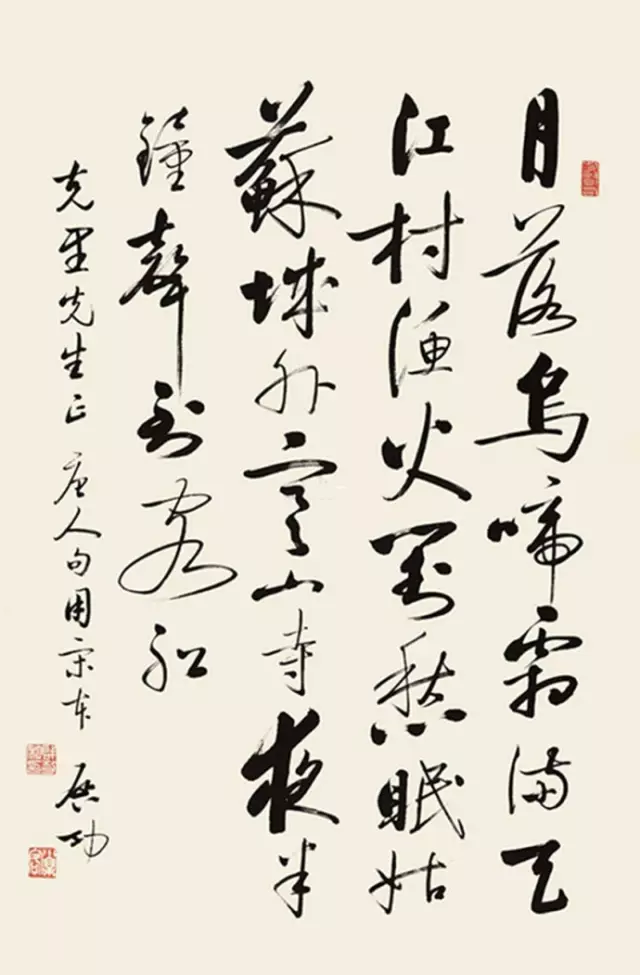 月落烏啼霜満天
江村渔火對愁眠姑
蘇城外寒山寺夜半
鐘聲到客船
克里先生正 唐人句用宋本
启功